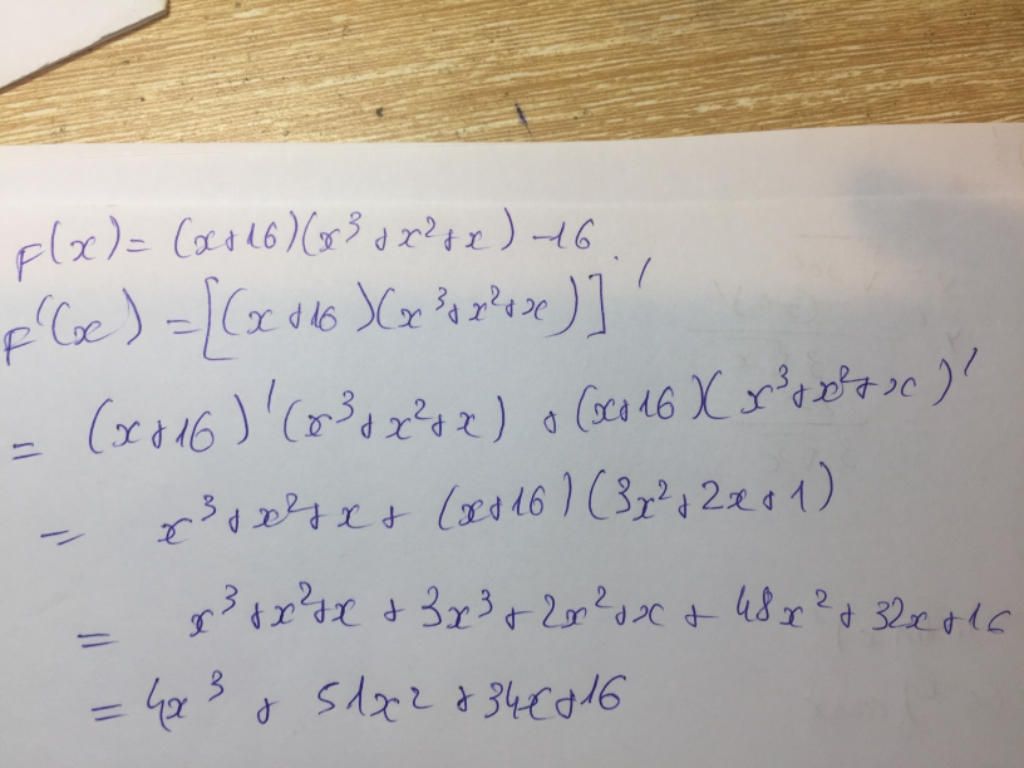 F(x) = (x+16)(x³+x²+x) -16
F'(x) = [(x+16)(x³+x²+x)]'
= (x+16)'(x³+x²+x) + (x+16)(x³+x²+x)'
= x³+x²+x + (x+16)(3x²+2x+1)
= x³+x²+x + 3x³+2x²+x + 48x²+32x+16
= 4x³ + 51x2 + 34x+16